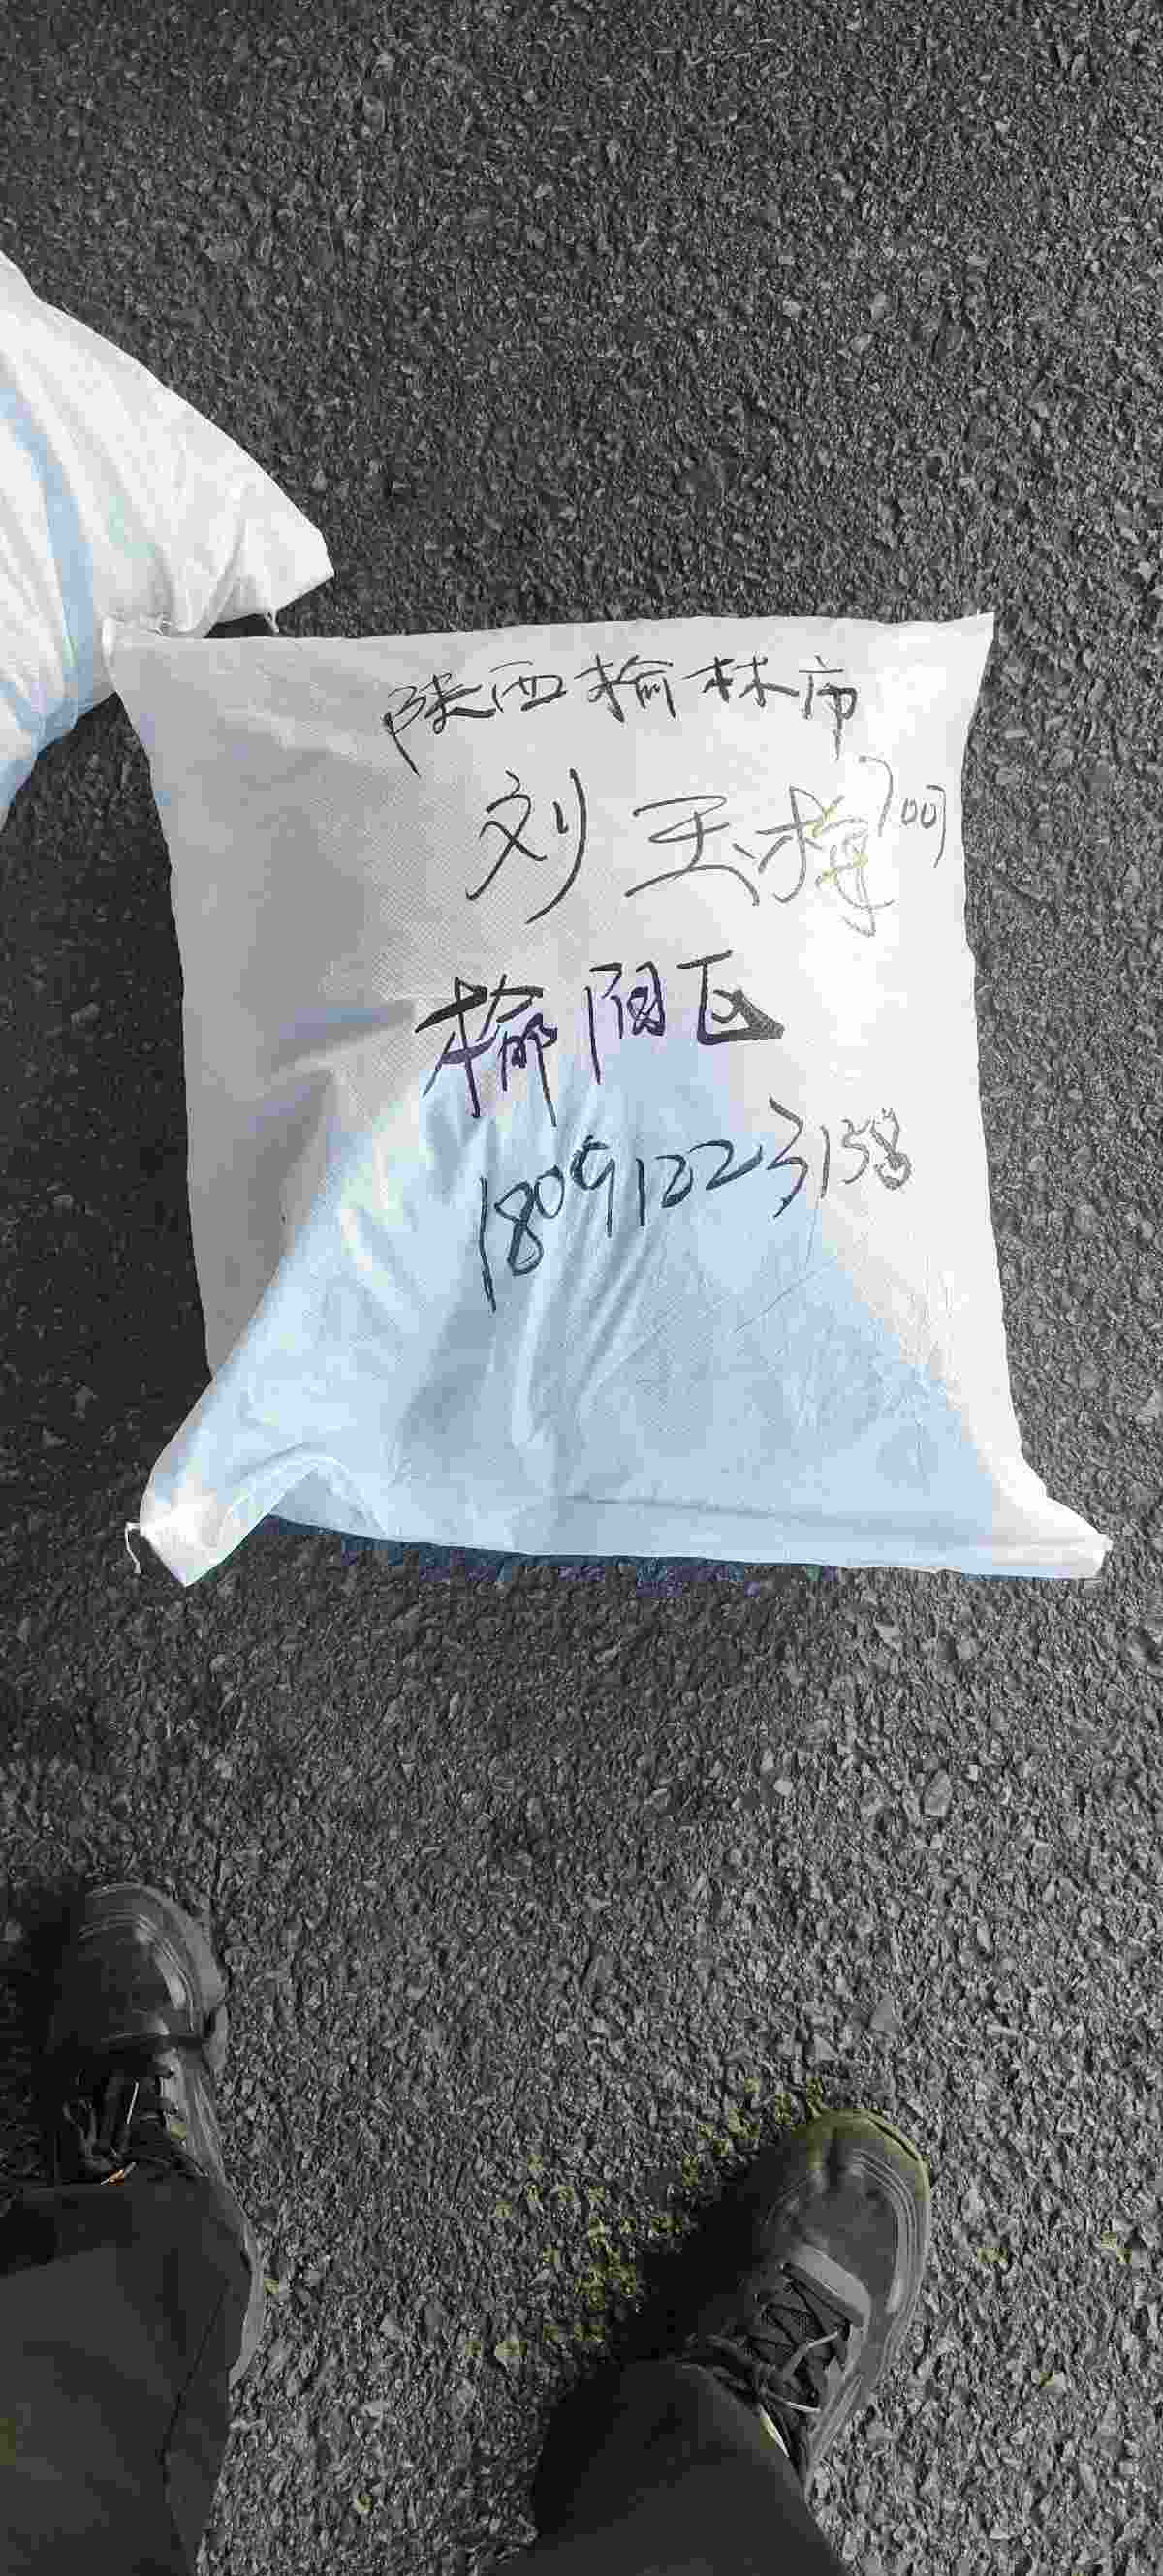 陕西榆林市
刘玉梅
榆阳区
18091223158